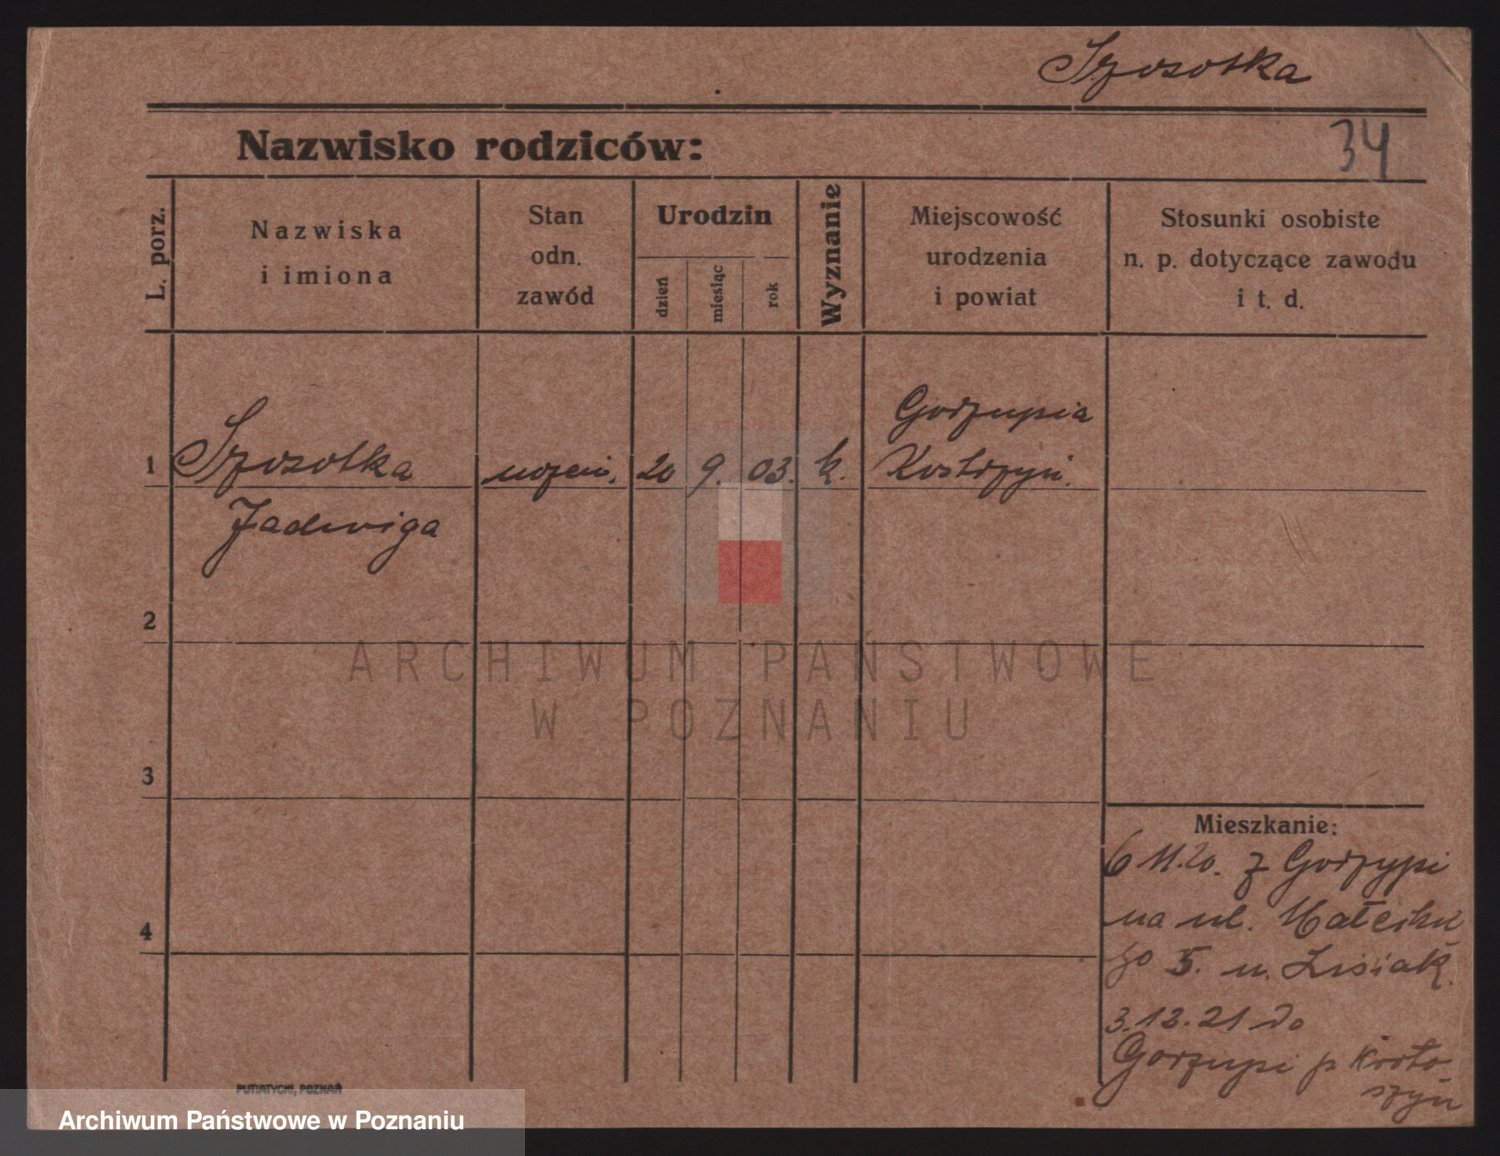 Szosotka
Nazwisko rodziców:
34
L. porz.
Nazwiska
i imiona
Stan
odn.
zawód
Urodzin
dzień
miesiąc
rok
Wyznanie
Miejscowość
urodzenia
i powiat
Stosunki osobiste
n. p. dotyczące zawodu
i t. d.
Gorzupia
1 Szosotka 20 9. 03. k. Kostrzyń.
Jadwiga
2
ARCHIWUM PAŃSTWOWE
W POZNANIU
3
4
Mieszkanie:
6 11.20. z Gorzypi
na ul. Małeckie
go 5. u. Lisiak.
3.12.21 do
Gorzupi p Kroto
szyn
PUTIATYCKI, POZNAŃ
Archiwum Państwowe w Poznaniu